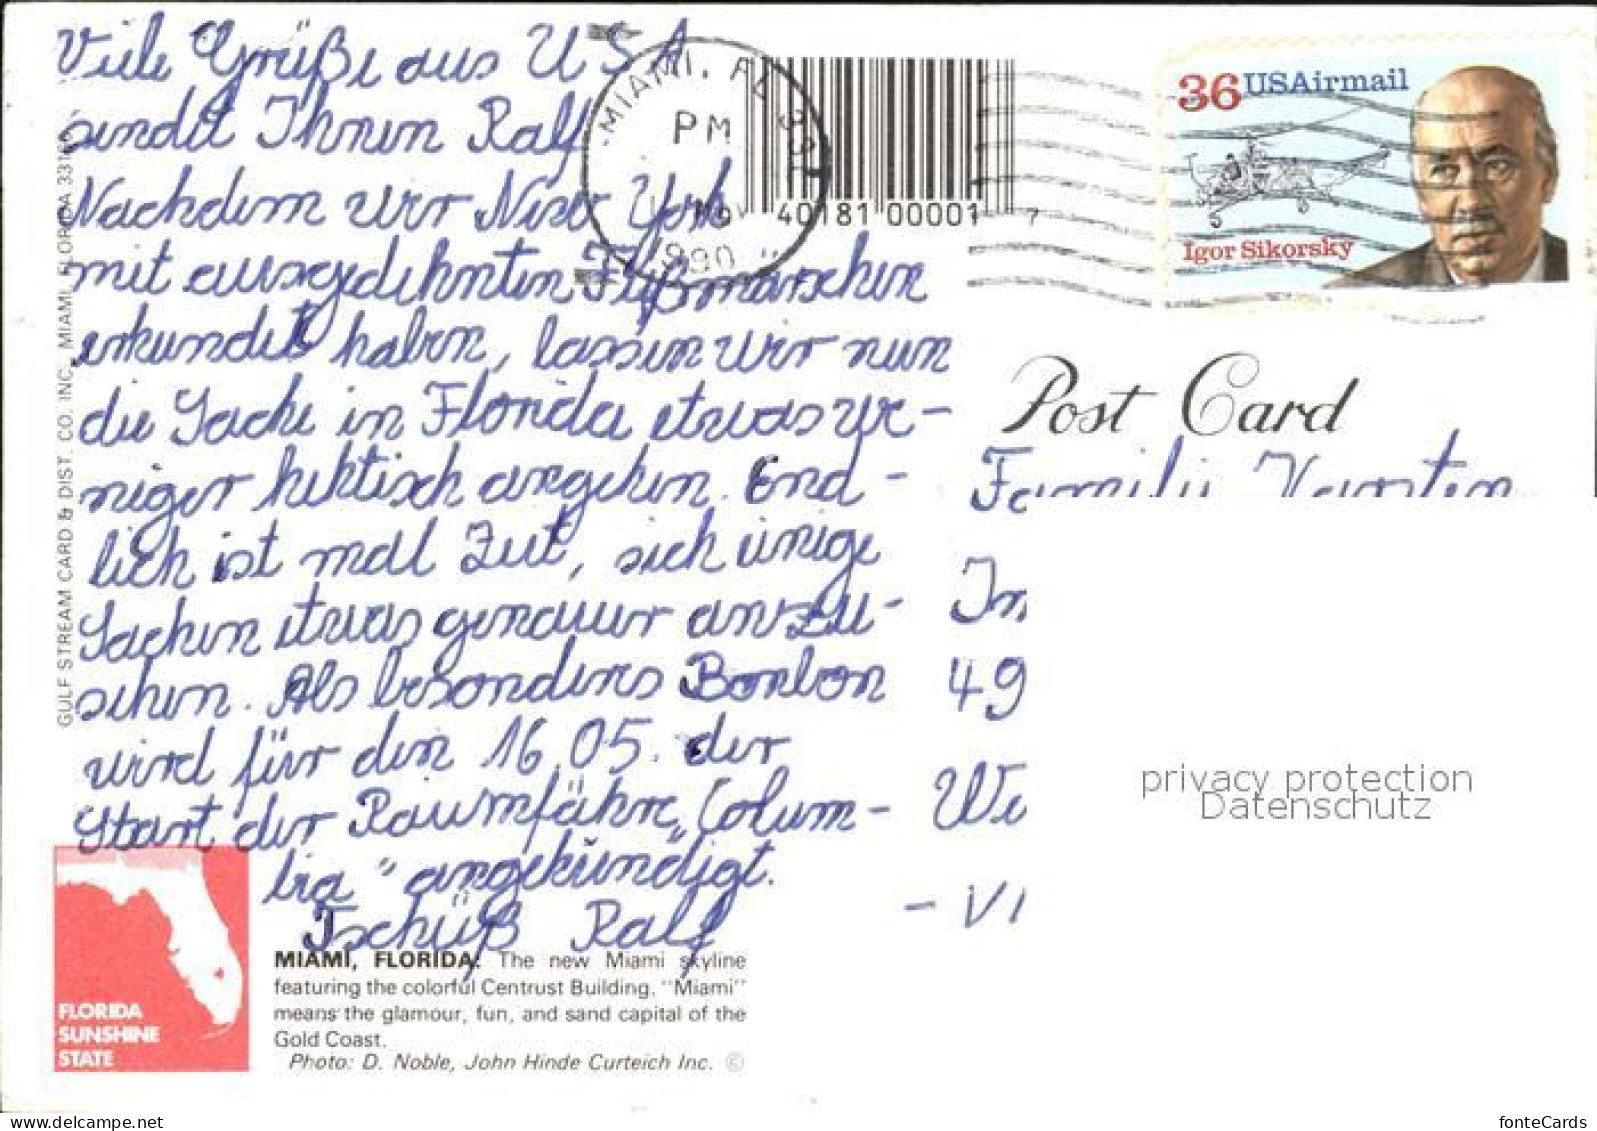 Viele Grüße aus USA
sendet Ihnen Ralf
Nachdem wir New York
mit ausgedehnten Fußmärschen
erkundet haben, lassen wir nun
die Sache in Florida etwas we-
niger hektisch angehen. End-
lich ist mal Zeit, sich einige
Sachen etwas genauer anzu-
sehen. Als besonderes Bonbon
wird für den 16.05. der
Start der Raumfähre "Colum-
bia" angekündigt.
Tschüß Ralf
MIAMI, FL 331
PM
1990
40181 00001 7
36 USAirmail
Igor Sikorsky
Post Card
Familie Karsten
Im
49
We
privacy protection
Datenschutz
GULF STREAM CARD & DIST. CO. INC., MIAMI, FLORIDA
FLORIDA
SUNSHINE
STATE
MIAMI, FLORIDA: The new Miami skyline
featuring the colorful Centrust Building. "Miami"
means the glamour, fun, and sand capital of the
Gold Coast.
Photo: D. Noble, John Hinde Curteich Inc. ©
www.delcampe.net
fonteCards